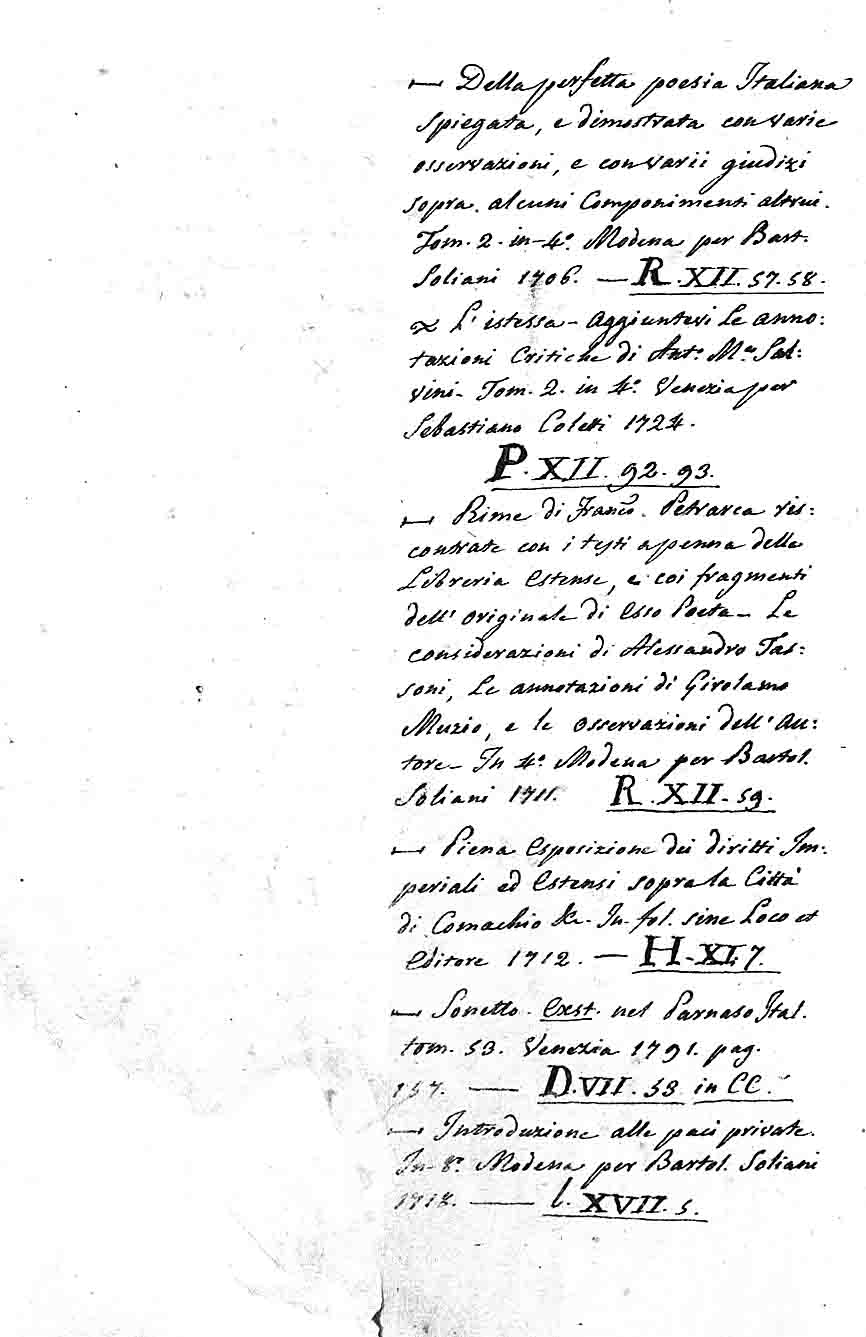 — Della perfetta poesia Italiana
spiegata, e dimostrata con varie
osservazioni, e con varii giudizi
sopra. alcuni Componimenti altrui.
Tom. 2. in-4º. Modena per Bart.
Soliani 1706. — R.XII.57.58.
L'istessa - Aggiuntevi le anno:
tazioni Critiche di Antº. Mª Sal:
vini - Tom. 2. in 4º. Venezia per
Sebastiano Coleti 1724.
P.XII.92.93.
— Rime di Francº. Petrarca ris:
contrate con i testi a penna della
Libreria Estense, e coi fragmenti
dell' originale di Esso Poeta - Le
considerazioni di Alessandro Tas:
soni, Le annotazioni di Girolamo
Muzio, e le osservazioni dell' Au:
tore - In 4º. Modena per Bartol.
Soliani 1711. R.XII.59.
— Piena Esposizione dei diritti Im:
periali ed Estensi sopra la Città
di Comachio &c. In fol. sine Loco et
Editore 1712. — H.XI.7.
— Sonetto. Exst. nel Parnaso Ital.
tom. 53. Venezia 1791. pag.
157. — D.VII.53 in CC.
— Introduzione alle paci private.
In 8º. Modena per Bartol. Soliani
1718. — l.XVII.5.